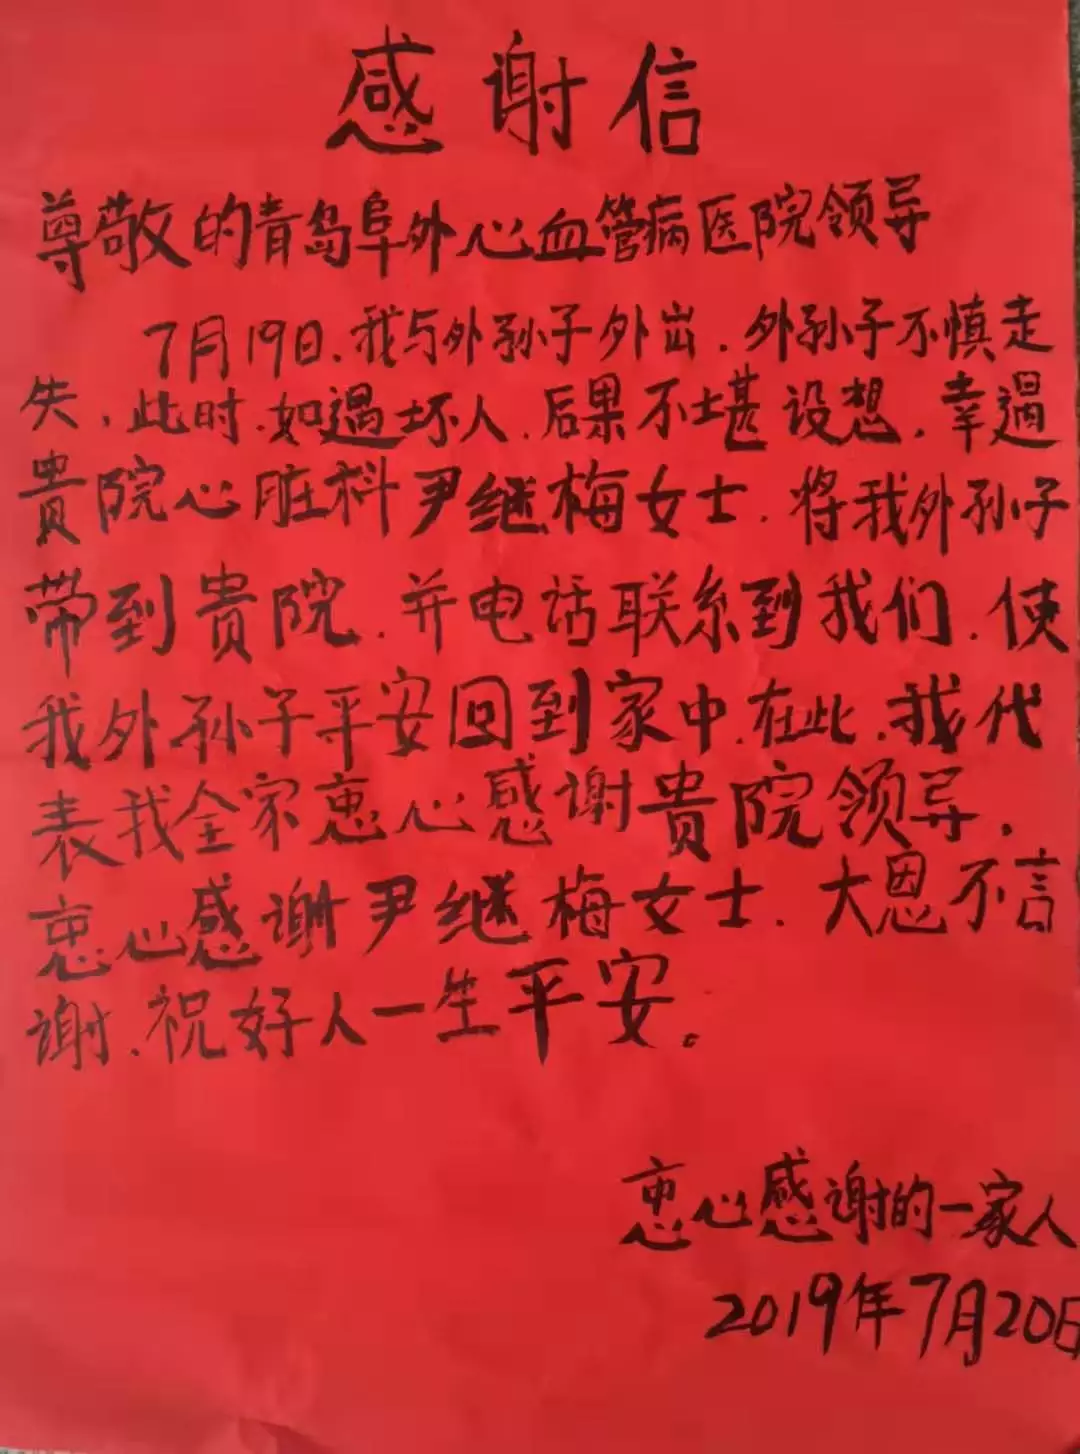 感谢信
尊敬的青岛阜外心血管病医院领导
7月19日、我与外孙子外出，外孙子不慎走
失，此时，如遇坏人，后果不堪设想，幸遇
贵院心脏科尹继梅女士，将我外孙子
带到贵院，并电话联系到我们，使
我外孙子平安回到家中，在此，我代
表我全家衷心感谢贵院领导，
衷心感谢尹继梅女士，大恩不言
谢、祝好人一生平安。
衷心感谢的一家人
2019年7月20日